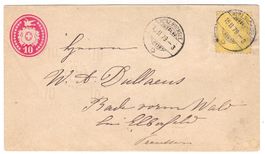 10
Herrn
W. A. Dullaeus
Bade vorm Wald
bei Elberfeld
Preussen